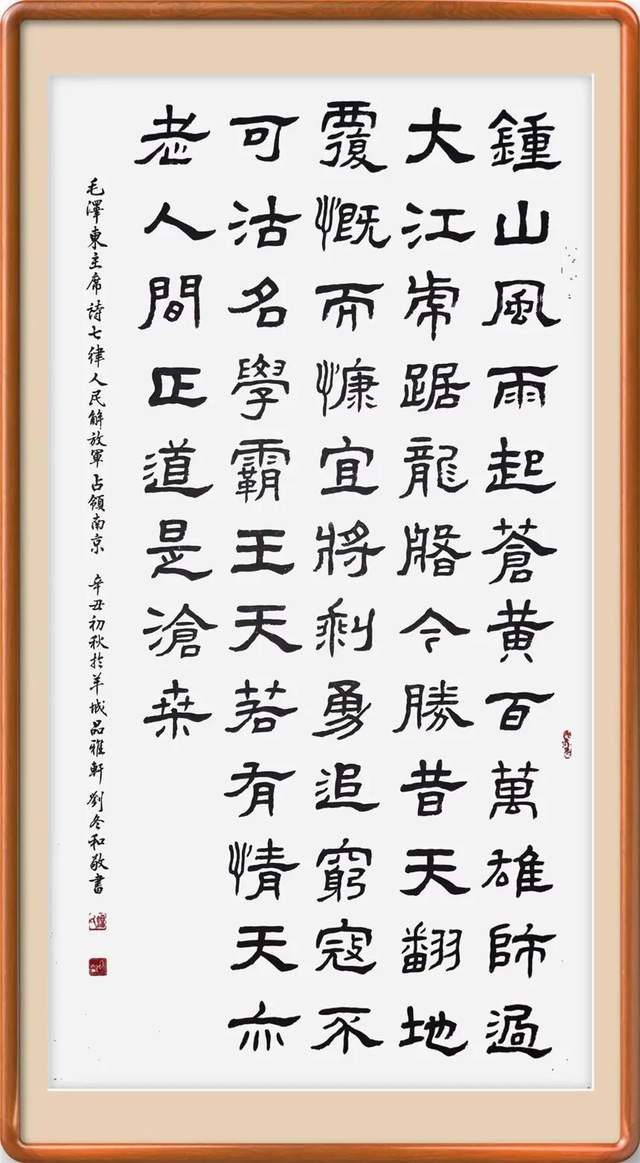 鍾山風雨起蒼黄百萬雄師過
大江虎踞龍盤今勝昔天翻地
覆慨而慷宜將剩勇追窮寇不
可沽名學霸王天若有情天亦
老人間正道是滄桒
毛澤東主席詩七律人民解放軍占領南京 辛丑初秋於羊城品雅軒 劉冬和敬書